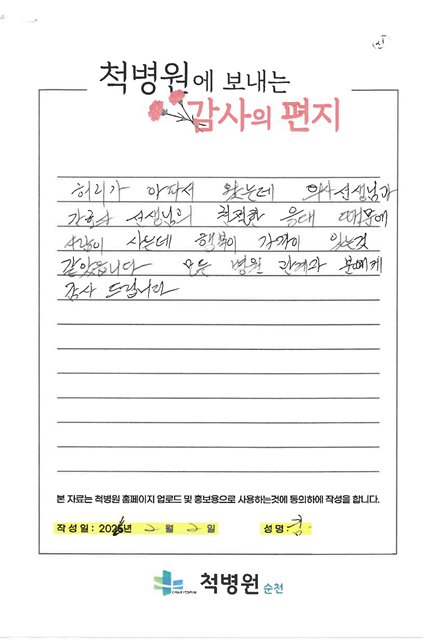 척병원에 보내는
감사의 편지
허리가 아파서 왔는데 의사선생님과
간호사 선생님의 친절한 응대 때문에
사람이 사는데 행복이 가까이 있는것
같았습니다 모든 병원 관계자 분에게
감사 드립니다
본 자료는 척병원 홈페이지 업로드 및 홍보용으로 사용하는것에 동의하에 작성을 합니다.
작성일: 2026년 2월 2일 성명:
척병원 순천